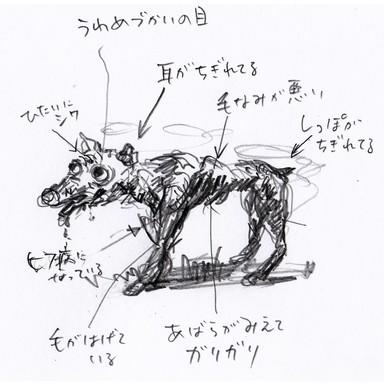 うわめづかいの目
耳がちぎれてる
毛なみが悪い
しっぽが
ちぎれてる
ひたいに
シワ
ヒフ病に
なっている
毛がはげて
いる
あばらがみえて
ガリガリ